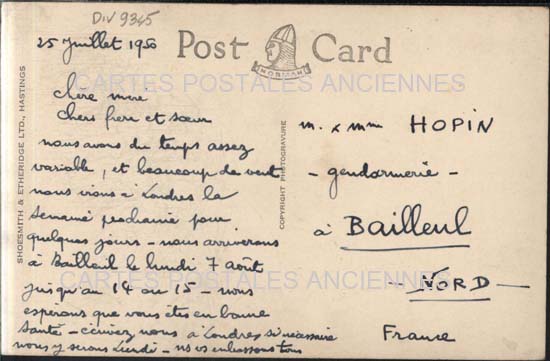 Div 9345
25 Juillet 1950
Post Card
NORMAN
CARTES POSTALES ANCIENNES
chère mère
chers frère et sœur
nous avons du temps assez
variable, et beaucoup de vent
nous irons à Londres la
semaine prochaine pour
quelques jours - nous arriverons
à Bailleul le lundi 7 août
jusqu'au 14 ou 15 - nous
esperons que vous êtes en bonne
santé - écrivez nous à Londres si nécessaire
nous y serons Lundi - ns vs embrassons tous
SHOESMITH & ETHERIDGE LTD., HASTINGS
COPYRIGHT PHOTOGRAVURE
m. & mme HOPIN
- gendarmerie -
à Bailleul
- NORD -
France
CARTES POSTALES ANCIENNES